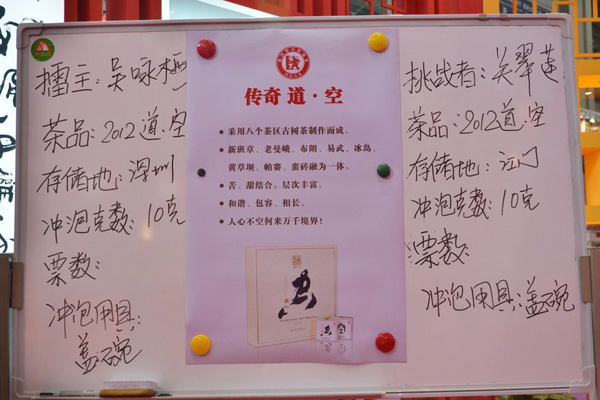 擂主:吴咏梅
茶品:2012道.空
存储地:深圳
冲泡克数:10克
票数:
冲包用具:
盖碗
传奇 道·空
● 采用八个茶区古树茶制作而成。
● 新班章、老曼峨、布朗、易武、冰岛、
黄草坝、帕赛、蛮砖融为一体。
● 苦、甜结合,层次丰富。
● 和谐、包容、相长。
● 人心不空何来万千境界!
挑战者:关翠莲
茶品:2012道.空
存储地:江门
冲泡克数:10克
票数:
冲包用具:盖碗